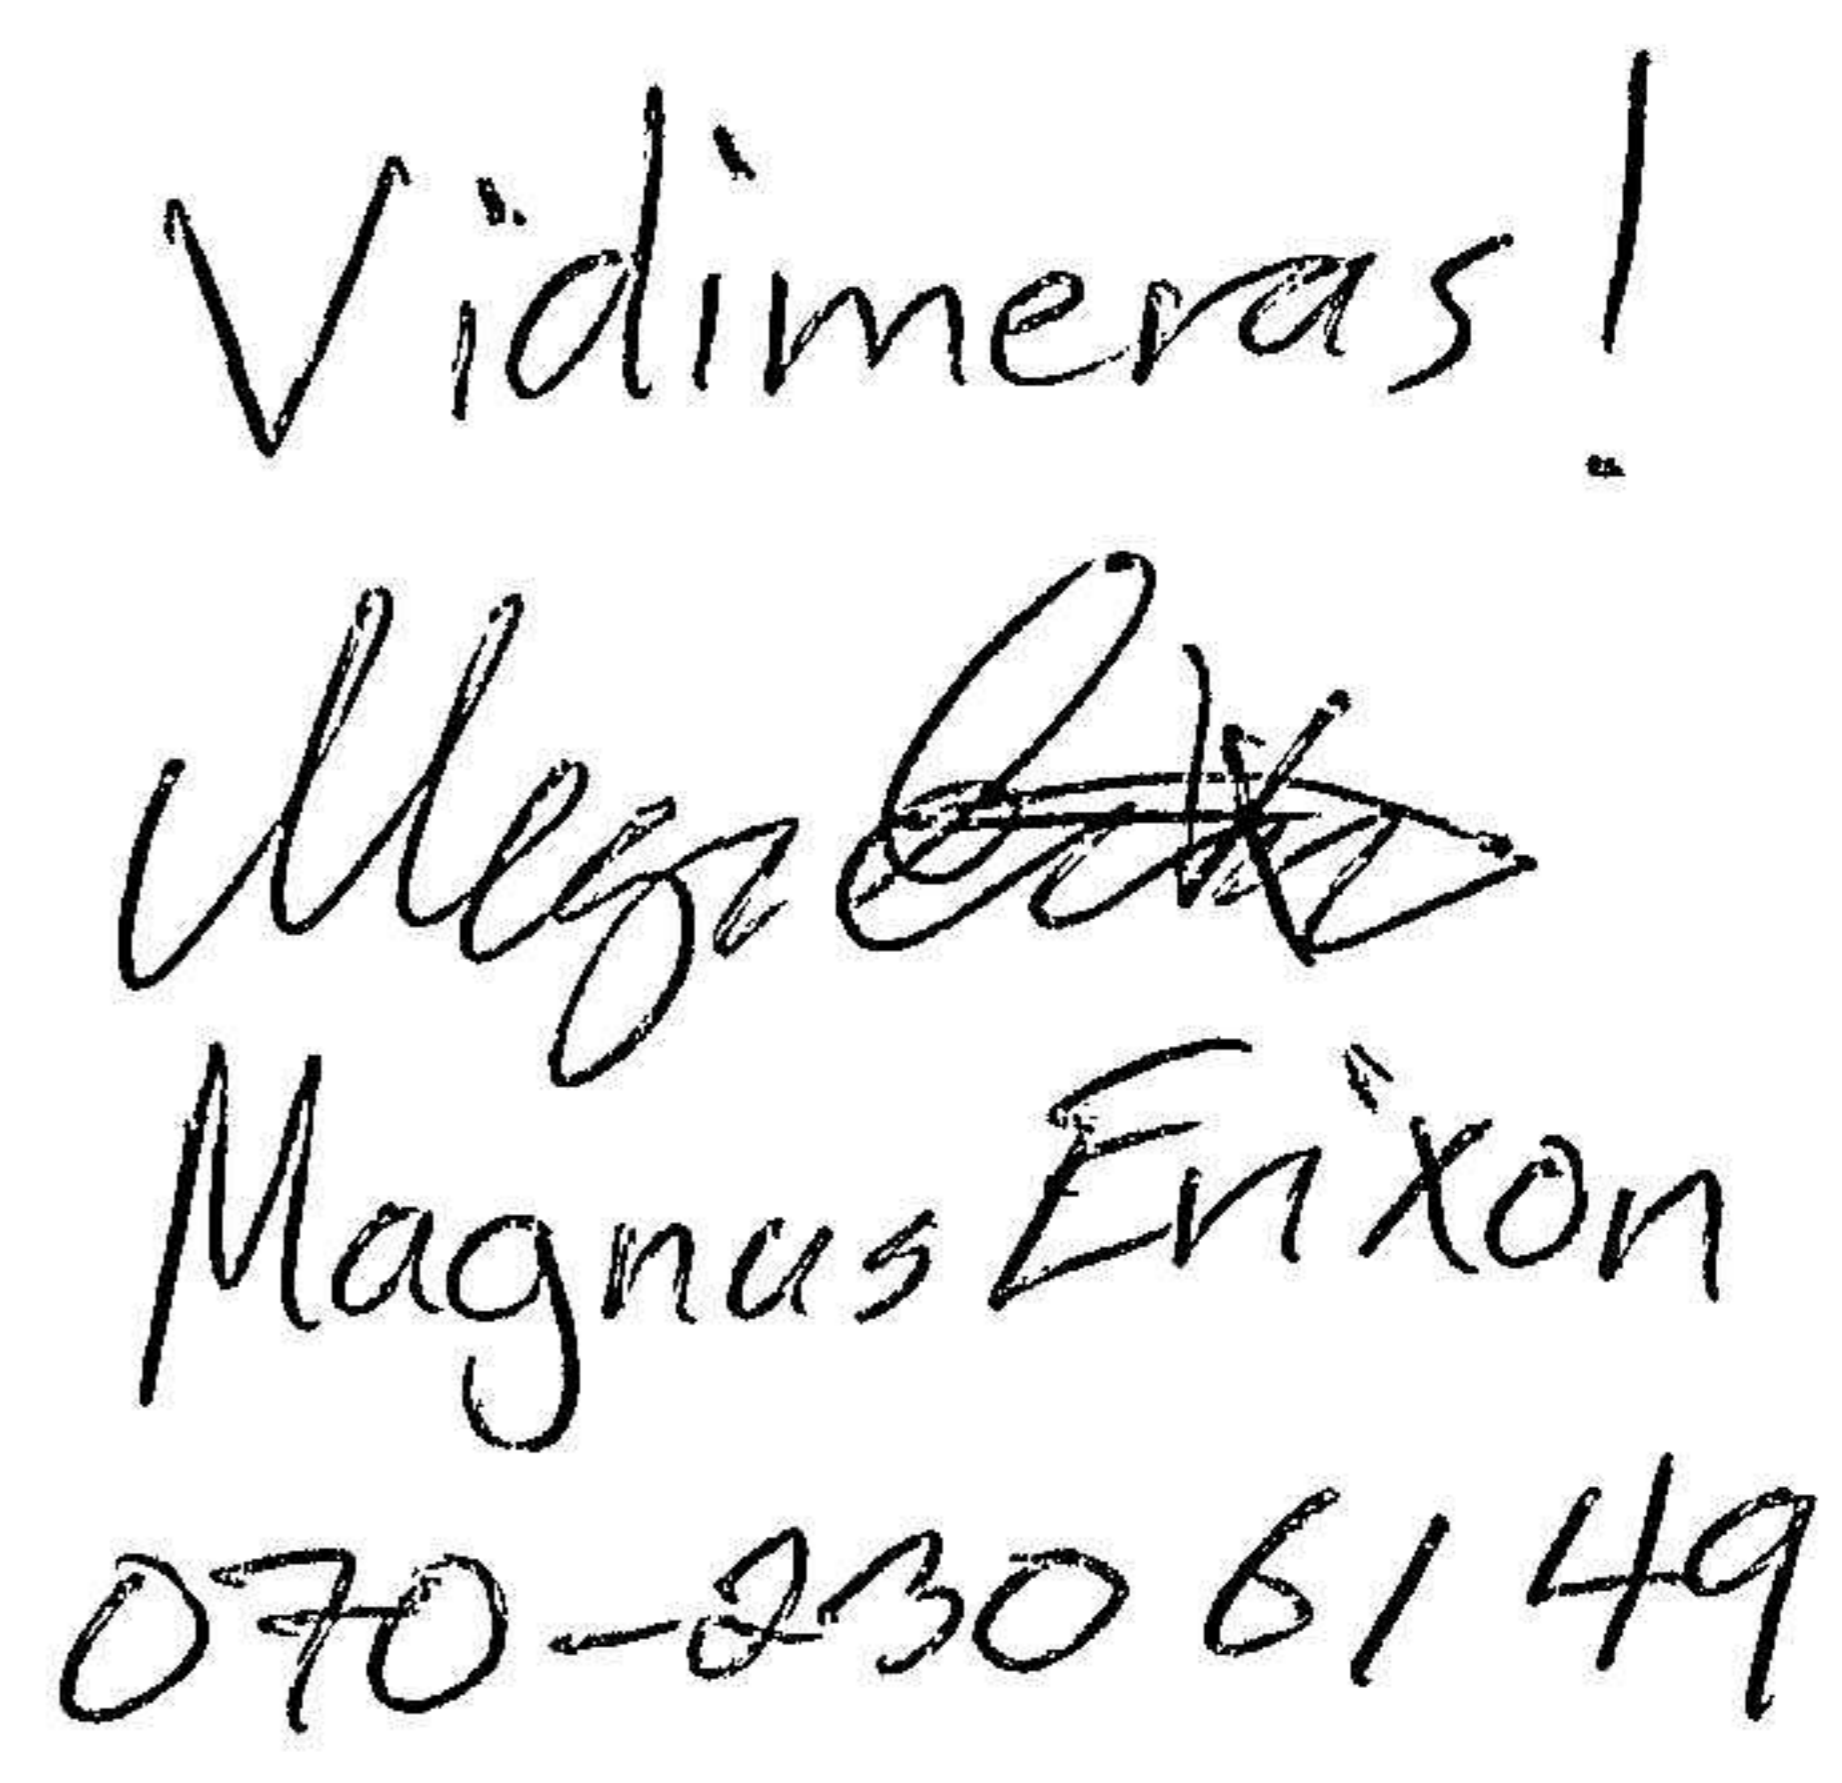 Vidimeras!
Magnus Erixon
070-230 61 49